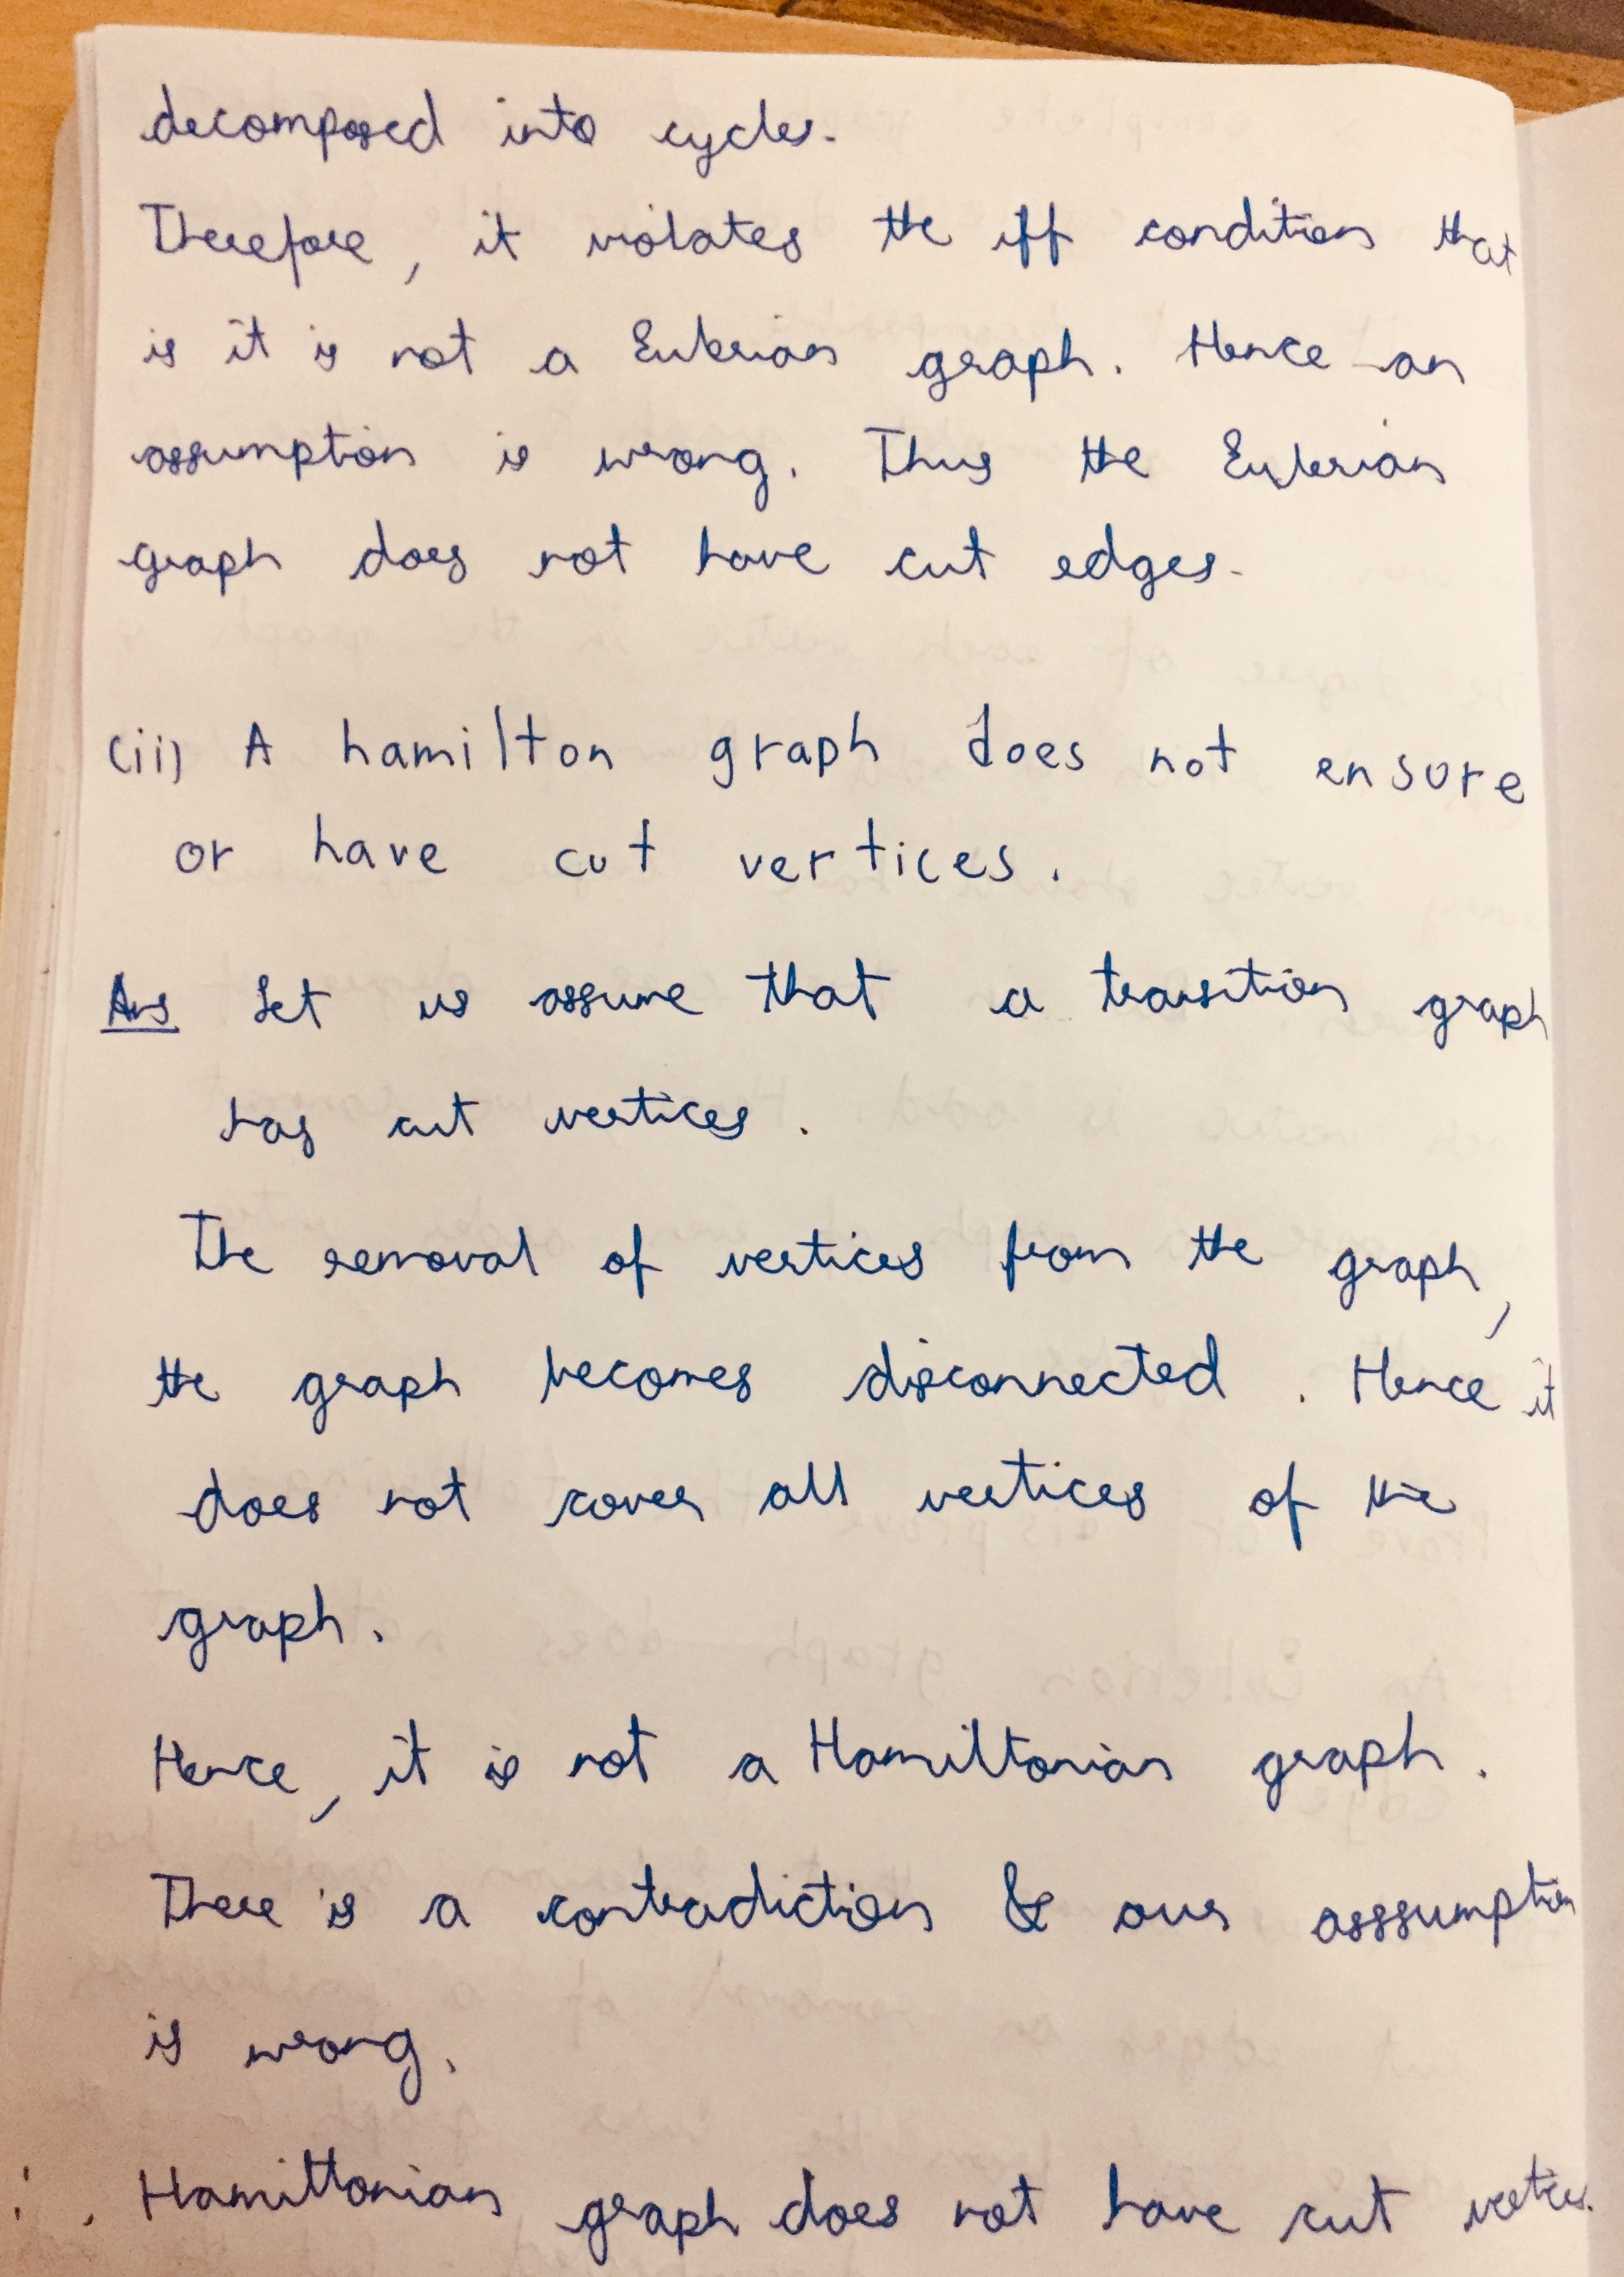 decomposed into cycles.
Therefore, it violates the iff condition that
is it is not a Eulerian graph. Hence an
assumption is wrong. Thus the Eulerian
graph does not have cut edges.
(ii) A hamilton graph does not ensure
or have cut vertices.
Ans Let us assume that a transition graph
has cut vertices.
The removal of vertices from the graph,
the graph becomes disconnected. Hence it
does not cover all vertices of the
graph.
Hence, it is not a Hamiltonian graph.
There is a contradiction & our asssumption
is wrong.
∴ Hamiltonian graph does not have cut vertices.